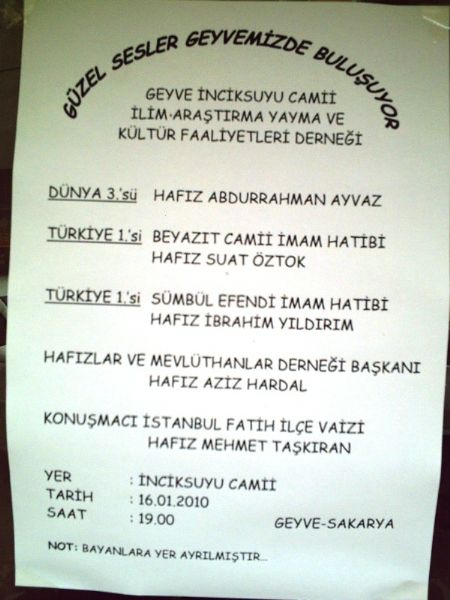 GÜZEL SESLER GEYVEMİZDE BULUŞUYOR
GEYVE İNCİKSUYU CAMİİ
İLİM-ARAŞTIRMA YAYMA VE
KÜLTÜR FAALİYETLERİ DERNEĞİ
DÜNYA 3.'sü HAFIZ ABDURRAHMAN AYVAZ
TÜRKİYE 1.'si BEYAZIT CAMİİ İMAM HATİBİ
HAFIZ SUAT ÖZTOK
TÜRKİYE 1.'si SÜMBÜL EFENDİ İMAM HATİBİ
HAFIZ İBRAHİM YILDIRIM
HAFIZLAR VE MEVLÜTHANLAR DERNEĞİ BAŞKANI
HAFIZ AZİZ HARDAL
KONUŞMACI İSTANBUL FATİH İLÇE VAİZİ
HAFIZ MEHMET TAŞKIRAN
YER : İNCİKSUYU CAMİİ
TARİH : 16.01.2010
SAAT : 19.00 GEYVE-SAKARYA
NOT: BAYANLARA YER AYRILMIŞTIR...